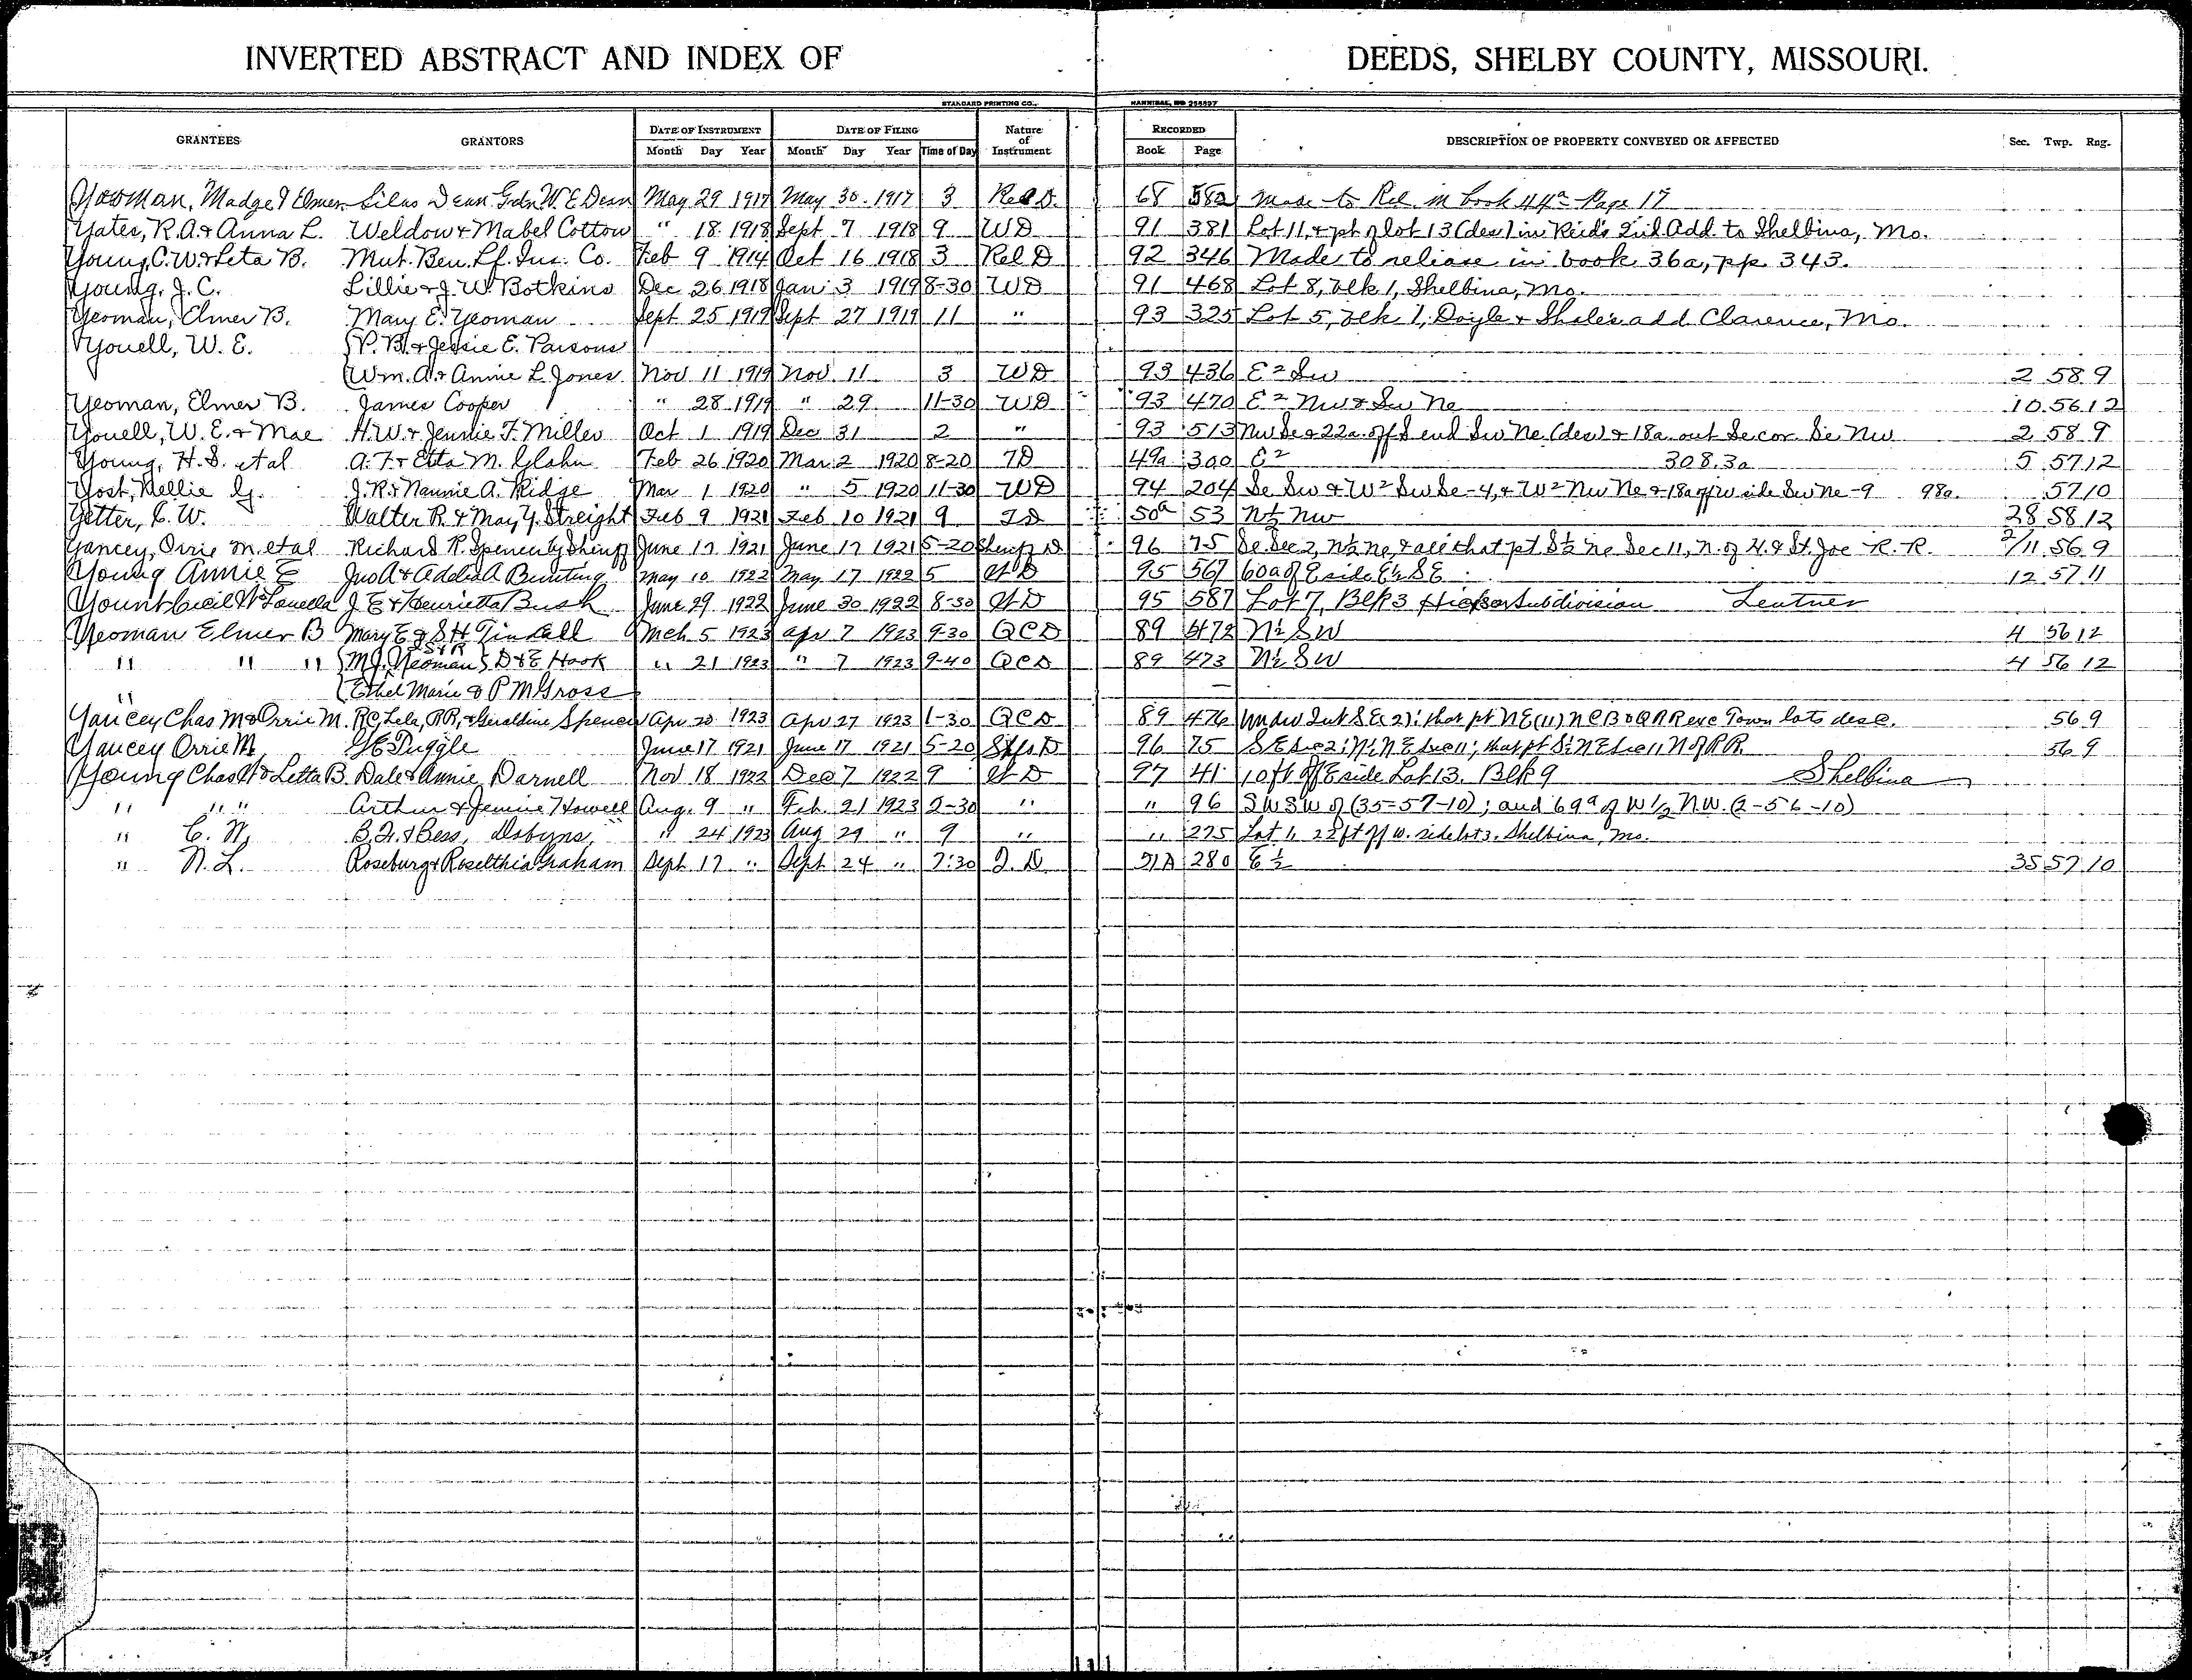 INVERTED ABSTRACT AND INDEX OF DEEDS, SHELBY COUNTY, MISSOURI.
STANDARD PRINTING CO., HANNIBAL, MO 255527
GRANTEES GRANTORS DATE OF INSTRUMENT DATE OF FILING Nature of Instrument RECORDED DESCRIPTION OF PROPERTY CONVEYED OR AFFECTED Sec. Twp. Rng.
Month Day Year Month Day Year Time of Day Book Page
Yowman, Madge & Elmer Silas Dean Grdn W. E. Dean May 29 1917 May 30 1917 3 Rel D. 68 582 Made to Rel in book 44a Page 17
Yates, R.A. & Anna L. Weldon & Mabel Cotton " 18 1918 Sept 7 1918 9 WD 91 381 Lot 11, & pt of lot 13 (des) in Reid's Add. to Shelbina, Mo.
Young, C.W. & Leta B. Mut. Ben. Lf. Ins. Co. Feb 9 1914 Oct 16 1918 3 Rel D 92 346 Made to reliase in book 36a, pp 343.
Young, J. C. Lillie & J. W. Botkins Dec 26 1918 Jan 3 1919 8-30 WD 91 468 Lot 8, blk 1, Shelbina, Mo.
Yeoman, Elmer B. Mary E. Yeoman Sept 25 1919 Sept 27 1919 11 " 93 325 Lot 5, blk 1, Doyle & add. Clarence, Mo.
Youell, W. E. P. B. & Jessie E. Parsons
Wm. A. & Annie L. Jones Nov 11 1919 Nov. 11 3 WD 93 436 E 2 Sw 2 58 9
Yeoman, Elmer B. James Cooper " 28 1919 " 29 11-30 WD 93 470 E 2 Nw & Sw Ne 10 56 12
Youell, W. E. & Mae H.W. & Jennie F. Miller Oct 1 1919 Dec 31 2 " 93 513 Nw Se & 22a. off S end Sw Ne (des) & 18a out Se cor Se Nw 2 58 9
Young, H. S. etal A. F. & Etta M. Glahn Feb 26 1920 Mar 2 1920 8-20 TD 49a 300 E 2 308.3a 5 57 12
Yost, Nellie G. J. R. & Nannie A. Ridge Mar 1 1920 " 5 1920 11-30 WD 94 204 Se Sw & W 2 Sw Se -4, & W 2 Nw Ne & 18a off W side Sw Ne -9 98a. 57 10
Yetter, C. W. Walter R. & May Y. Streight Feb 9 1921 Feb 10 1921 9 TD 50a 53 N½ Nw 28 58 12
Yancey, Orrie M. etal Richard R. Spencer by Sheriff June 17 1921 June 17 1921 5-20 Sheriff D 96 75 Se Sec 2, N½ Ne, & all that pt S½ Ne Sec 11, N. of H. & St. Joe R. R. 2/11 56 9
Young Annie E Jno A & Addie A Bunting May 10 1922 May 17 1922 5 W D 95 567 60a of E side E½ SE 12 57 11
Yount Cecil W & Louella J. E. & Henrietta Bush June 29 1922 June 30 1922 8-30 W D 95 587 Lot 7, Blk 3 Subdivision Lentner
Yeoman Elmer B Mary E & S H Tindall Mch 5 1923 Apr 7 1923 9-30 QCD 89 472 N½ SW 4 56 12
" " " M. J. Yeoman S D & E Hook " 21 1923 " 7 1923 9-40 QCD 89 473 N½ SW 4 56 12
" Ethel Marie & P M Gross
Yancey Chas M & Orrie M. R C, Lela, RR, & Geraldine Spencer Apr 20 1923 Apr 27 1923 1-30 QCD 89 476 Undiv Int SE (2); that pt NE (11) N C B & Q RR exc Town lots desc. 56 9
Yancey Orrie M. Tuggle June 17 1921 June 17 1921 5-20 Shffs D 96 75 SE Sec 2; N½ NE Sec 11; that pt S½ NE Sec 11 N of RR. 56 9
Young Chas W & Letta B. Dale & Annie Darnell Nov 18 1922 Dec 7 1922 9 W D 97 41 10 ft off E side Lot 13. Blk 9 Shelbina
" " " Arthur & Jennie Howell Aug. 9 " Feb. 21 1923 2-30 " " 96 SW SW of (35-57-10); and 69a of W 1/2 N.W. (2-56-10)
" C. W. B. F. & Bess, Dobyns, " 24 1923 Aug 29 " 9 " " 275 Lot 1, 22 ft off W. side lot 3, Shelbina, Mo.
" N. L. Roseburg & Roselthia Graham Sept 17 " Sept 24 " 7:30 T. D. 51A 280 E ½ 35 57 10